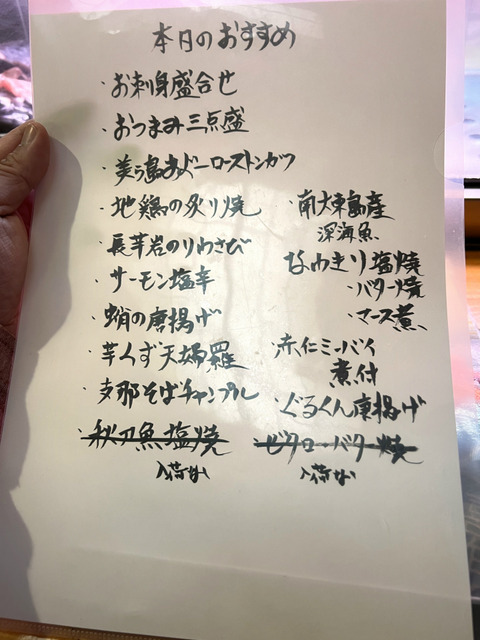 本日のおすすめ
・お刺身盛合せ
・おつまみ三点盛
・美ら島あぐーローストンカツ
・地鶏の炙り焼
・長芋岩のりわさび
・サーモン塩辛
・蛸の唐揚げ
・芋くず天婦羅
・支那そばチャンプル
・秋刀魚塩焼
入荷なし
・南大東島産
深海魚
なわきり塩焼
・バター焼
・マース煮
・赤仁ミーバイ
煮付
・ぐるくん唐揚げ
・セタローバター焼
入荷なし